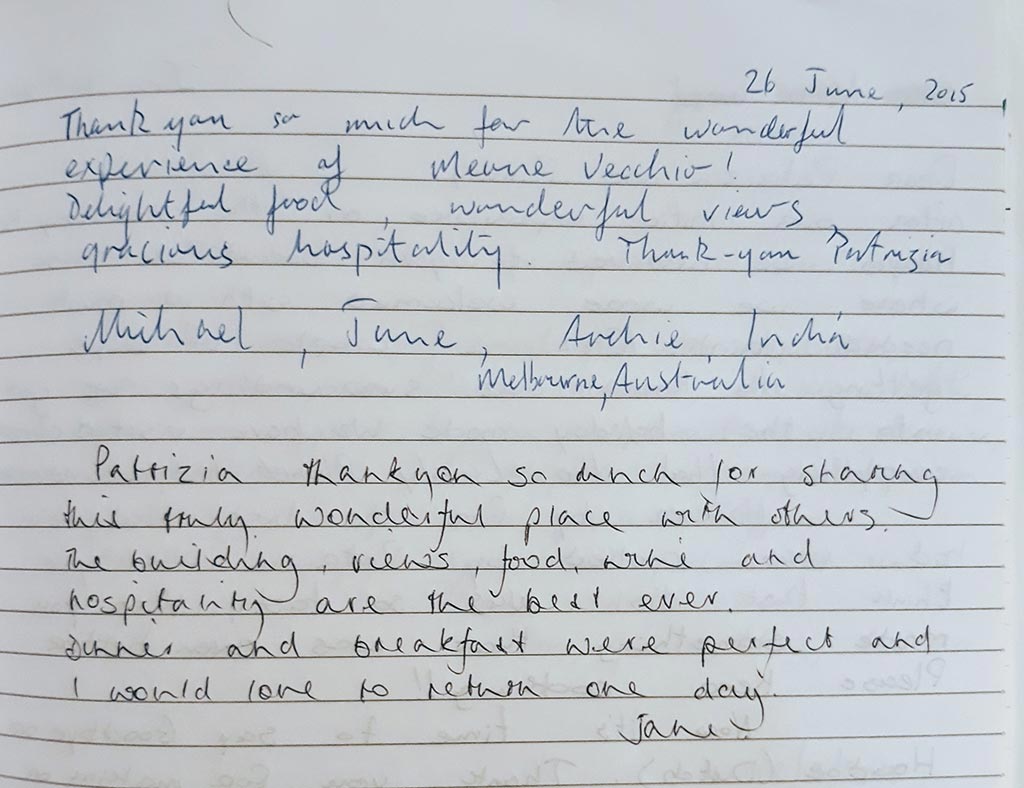 26 June, 2015
Thank you so much for the wonderful
experience of Meune Vecchio!
Delightful food, wonderful views
gracious hospitality. Thank-you Patrizia
Michael, June, Archie, India
Melbourne, Australia
Patrizia thankyou so much for sharing
this truly wonderful place with others.
The building, views, food, wine and
hospitality are the best ever.
Dinner and breakfast were perfect and
I would love to return one day.
Jane